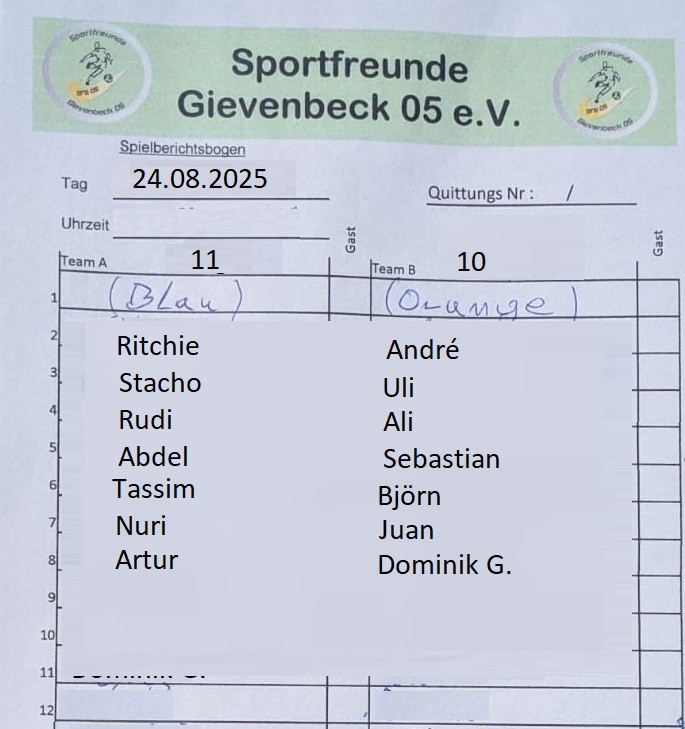 Sportfreunde
Gievenbeck 05 e.V.
Sportfreunde
SFG 05
Gievenbeck 05
Sportfreunde
Gievenbeck 05
Spielberichtsbogen
Tag 24.08.2025
Quittungs Nr : /
Uhrzeit
Gast
Gast
Team A 11
Team B 10
1 (Blau) (Orange)
2 Ritchie André
3 Stacho Uli
4 Rudi Ali
5 Abdel Sebastian
6 Tassim Björn
7 Nuri Juan
8 Artur Dominik G.
9
10
11
12